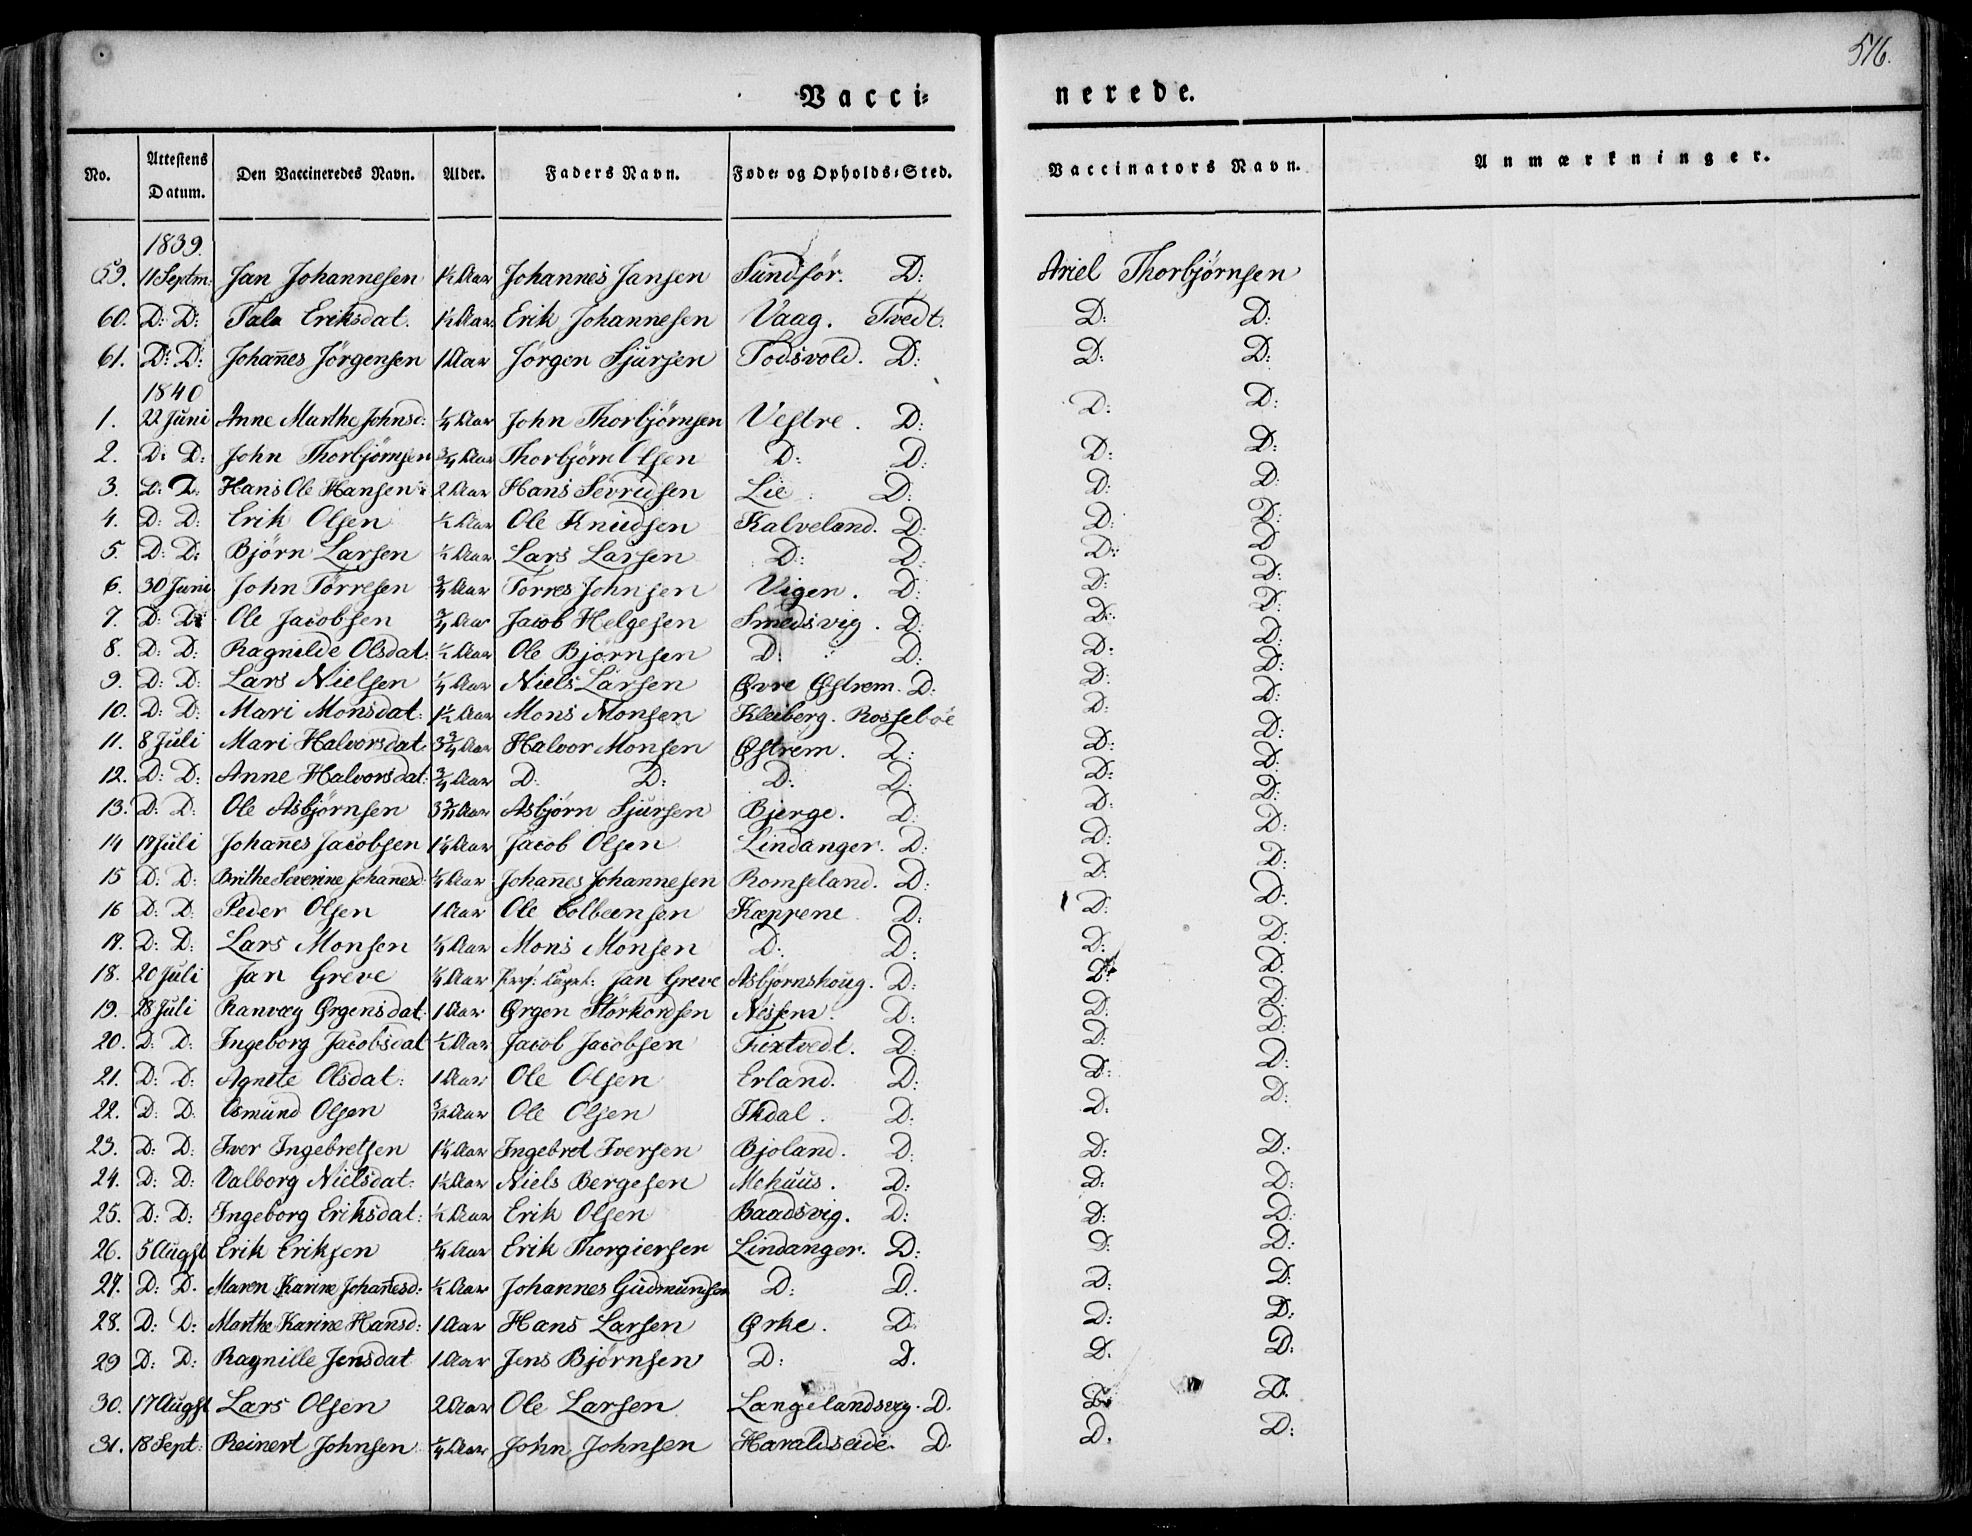 516.
Vacci= nerede.
No. Attestens Datum. Den Vaccineredes Navn. Alder. Faders Navn. Føde= og Opholds=Sted. Vaccinators Navn. Anmærkninger.
1839.
59. 11 Septm. Jan Johannesen 1½ Aar Johannes Jansen Sundfør. D: Ariel Thorbjørnsen
60. D: D: Tala Eriksdat. 1½ Aar Erik Johannesen Vaag. Tvedt. D: D:
61. D: D: Joha&#772;nes Jörgensen 1 Aar Jörgen Sjursen Todsvold. D: D: D:
1840
1. 22 Juni Anne Marthe Johnsd: ¼ Aar John Thorbjörnsen Vestre. D: D: D:
2. D: D: John Thorbjörnsen ¾ Aar Thorbjörn Olsen D: D: D: D:
3. D: D: Hans Ole Hansen 2 Aar Hans Sevridsen Lie D: D: D:
4. D: D: Erik Olsen ½ Aar Ole Knudsen Kalveland. D: D: D:
5. D: D: Björn Larsen ½ Aar Lars Larsen D: D: D: D
6. 30 Juni John Törresen ¾ Aar Torres Johnsen Vigen. D: D: D:
7. D: D: Ole Jacobsen ¾ Aar Jacob Helgesen Smedsvig. D: D: D:
8. D: D: Ragnilde Olsdat. ½ Aar Ole Björnsen D: D: D: D:
9. D: D: Lars Nielsen ¼ Aar Niels Larsen Øvre Østrem. D: D: D:
10. D: D: Mari Monsdat: 1½ Aar Mons Monsen Kleiberg. Rossebøe D: D:
11. 8 Juli Mari Halvorsdat. 3¾ Aar Halvor Monsen Østrem. D: D: D:
12. D: D: Anne Halvorsdat: ¾ Aar D: D: D: D: D: D:
13. D: D: Ole Asbjörnsen 3¾ Aar Asbjørn Sjursen Bjerge. D: D: D:
14 17 Juli Joha&#772;nes Jacobsen 1¼ Aar Jacob Olsen Lindanger. D: D: D:
15 D: D: Brithe Severine Johanesd ¼ Aar Joha&#772;nes Johannesen Romseland. D: D: D:
16 D: D: Peder Olsen 1 Aar Ole Colbeensen Kæppene D: D: D:
17. D: D: Lars Monsen ¼ Aar Mons Monsen D: D: D: D:
18. 20 Juli Jan Greve ¼ Aar Jan Greve Asbjørnshoug. D: D: D:
19. 28 Juli Ranvæg Ørgensdat: 1 Aar Ørgen Störkorsen D: D: D:
20. D: D: Ingeborg Jacobsdat ½ Aar Jacob Jacobsen Fiextvedt. D: D: D:
21. D: D: Agnete Olsdat: 1 Aar Ole Olsen Erland. D: D: D:
22. D: D. Osmund Olsen Aar Ole Olsen D: D. D:
23. D: D: Iver Ingebretsen 1¼ Aar Ingebret Iversen Bjoland. D: D: D:
24. D: D: Valborg Nielsdat: 1½ Aar Niels Bergesen Mehuus. D: D: D:
25. D: D: Ingeborg Eriksdat: ½ Aar Erik Olsen Baadsvig. D: D: D:
26. 5 Augst Erik Eriksen ¼ Aar Erik Thorgiersen Lindanger. D: D: D:
27. D: D. Maren Karine Johanesd: ½ Aar Johannes Gudmundsen D: D. D: D:
28. D: D: Marthe Karine Hansd: 1 Aar Hans Larsen Ørke. D: D: D:
29 D: D: Ragnille Jensdat 1 Aar Jens Björnsen D: D. D. D:
30. 17 Augst Lars Olsen 2 Aar Ole Larsen Langelandsvig. D. D: D:
31. 18 Sept: Reinert Johnsen ¼ Aar John Johnsen Haraldseide. D. D. D: